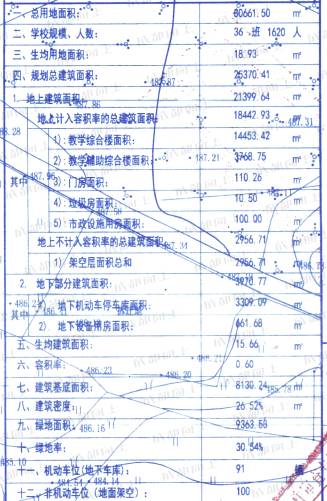 一、总用地面积: 30661.50 ㎡
二、学校规模、人数: 36 班 1620 人
三、生均用地面积: 18.93 ㎡
四、规划总建筑面积: 25370.41 ㎡
1. 地上建筑面积: 21399.64 ㎡
地上计入容积率的总建筑面积: 18442.93 ㎡
1):教学综合楼面积: 14453.42 ㎡
2):教学辅助综合楼面积: 3768.75 ㎡
其中 3):门房面积: 110.26 ㎡
4):垃圾房面积: 10.50 ㎡
5):市政设施用房面积: 100.00 ㎡
地上不计入容积率的总建筑面积: 2956.71 ㎡
1)架空层面积总和 2956.71 ㎡
2. 地下部分建筑面积: 3970.77 ㎡
其中 1)地下机动车停车库面积: 3309.09 ㎡
2)地下设备用房面积: 661.68 ㎡
五、生均建筑面积: 15.66 ㎡
六、容积率: 0.60
七、建筑基底面积: 8130.24 ㎡
八、建筑密度: 26.52%
九、绿地面积: 9363.50 ㎡
十、绿地率: 30.54%
十一、机动车位(地下车库): 91 辆
十二、非机动车位(地面架空): 100
487.87
487.86
487.31
487.21
487.96
487.34
486.23
486.20
486.16
484.14